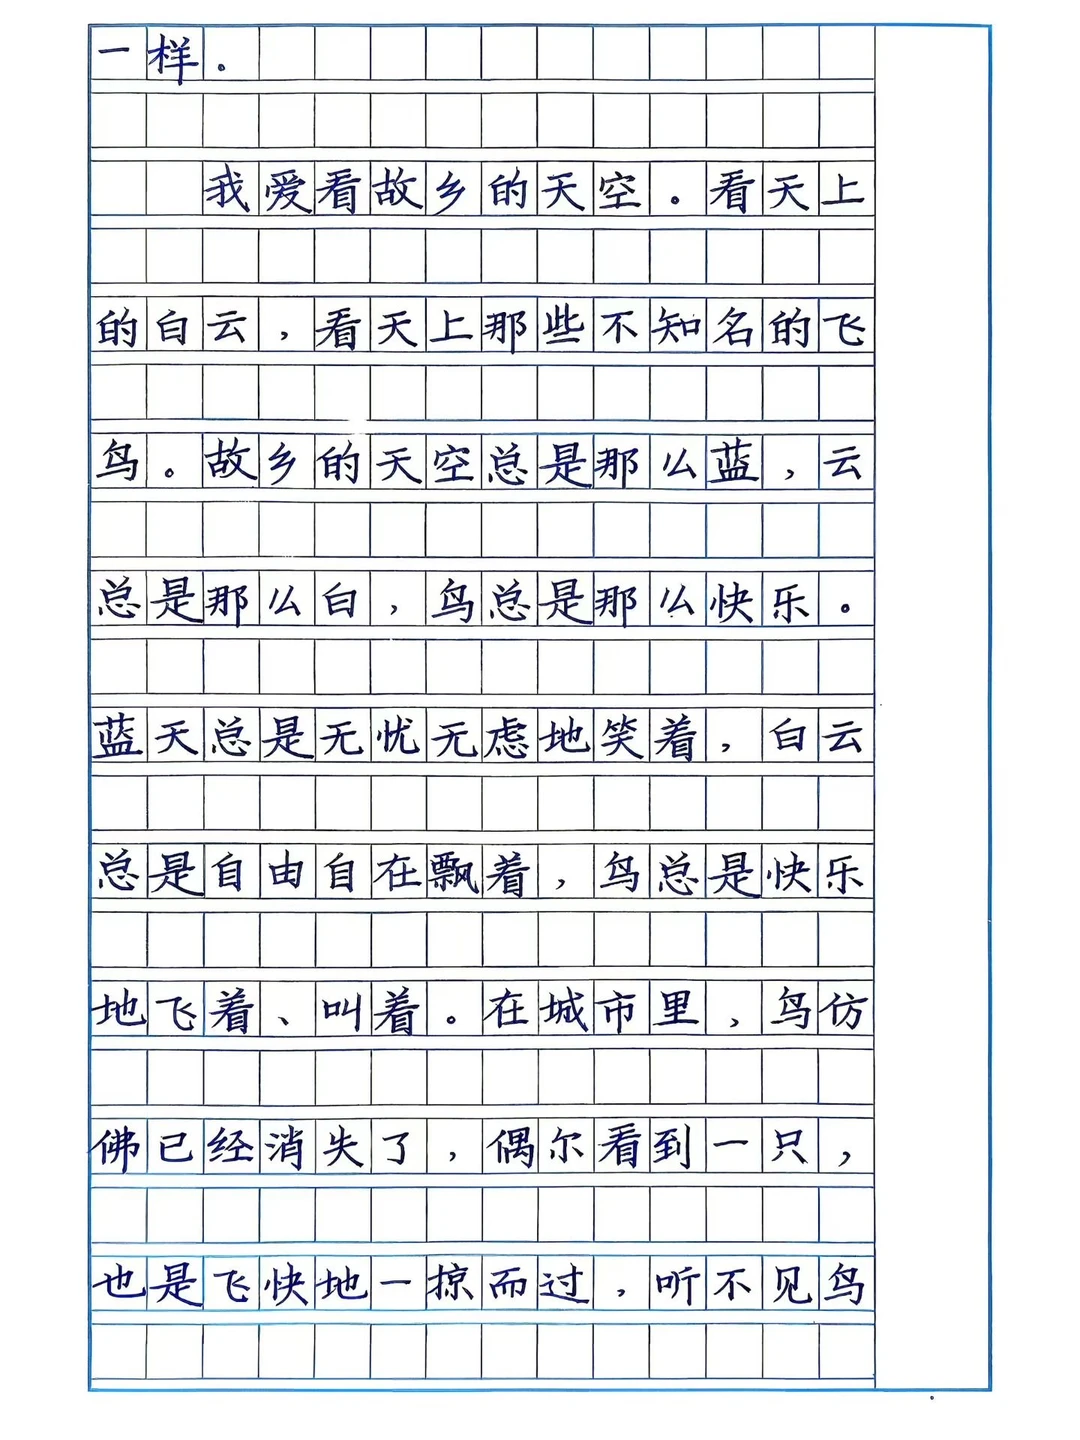 一样。
我爱看故乡的天空。看天上
的白云，看天上那些不知名的飞
鸟。故乡的天空总是那么蓝，云
总是那么白，鸟总是那么快乐。
蓝天总是无忧无虑地笑着，白云
总是自由自在飘着，鸟总是快乐
地飞着、叫着。在城市里，鸟仿
佛已经消失了，偶尔看到一只，
也是飞快地一掠而过，听不见鸟